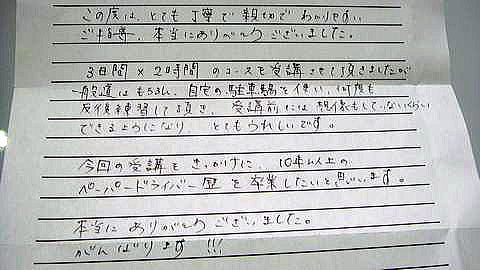 この度は、とても丁寧で親切でわかりやすい
ご指導、本当にありがとうございました。
3日間×2時間のコースを受講させて頂きましたが
一般道はもちろん、自宅の駐車場を使い、何度も
反復練習して頂き、受講前には想像もしていないくらい
できるようになり、とてもうれしいです。
今回の受講をきっかけに、10年以上の
ペーパードライバー歴を卒業したいと思います。
本当にありがとうございました。
がんばります!!!